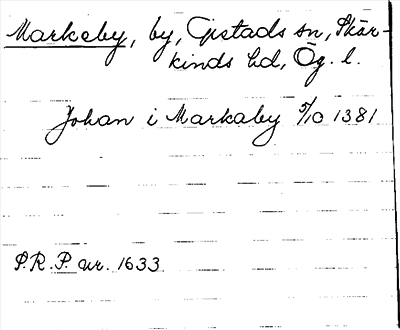 Markeby, by, Gistads sn, Skär-
kinds hd, Ög. l.
Johan i Markaby 5/10 1381
S.R.P. nr. 1633